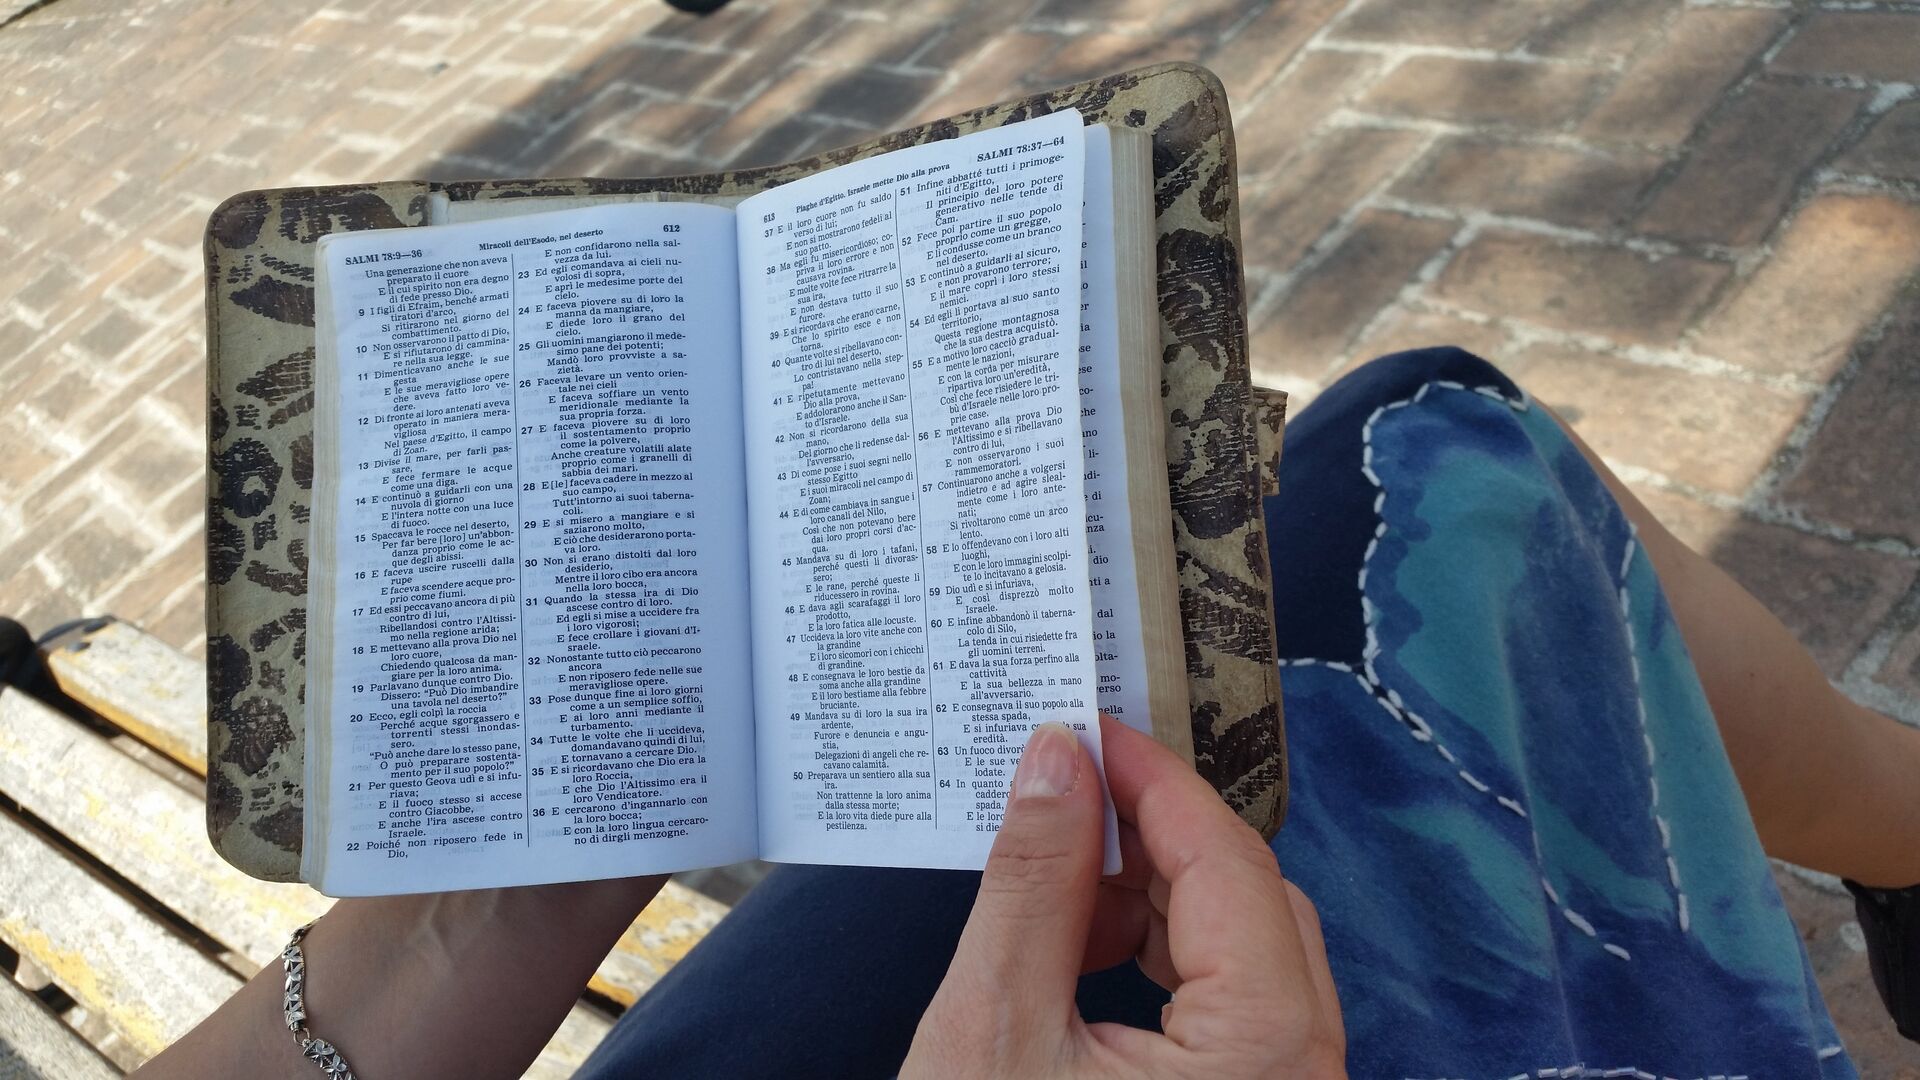 SALMI 78:9—36
Miracoli dell'Esodo, nel deserto
612
Una generazione che non aveva
preparato il cuore
E il cui spirito non era degno
di fede presso Dio.
9 I figli di Efraim, benché armati
tiratori d'arco,
Si ritirarono nel giorno del
combattimento.
10 Non osservarono il patto di Dio,
E si rifiutarono di cammina-
re nella sua legge.
11 Dimenticavano anche le sue
gesta
E le sue meravigliose opere
che aveva fatto loro ve-
dere.
12 Di fronte ai loro antenati aveva
operato in maniera mera-
vigliosa
Nel paese d'Egitto, il campo
di Zoan.
13 Divise il mare, per farli pas-
sare,
E fece fermare le acque
come una diga.
14 E continuò a guidarli con una
nuvola di giorno
E l'intera notte con una luce
di fuoco.
15 Spaccava le rocce nel deserto,
Per far bere [loro] un'abbon-
danza proprio come le ac-
que degli abissi.
16 E faceva uscire ruscelli dalla
rupe
E faceva scendere acque pro-
prio come fiumi.
17 Ed essi peccavano ancora di più
contro di lui,
Ribellandosi contro l'Altissi-
mo nella regione arida;
18 E mettevano alla prova Dio nel
loro cuore,
Chiedendo qualcosa da man-
giare per la loro anima.
19 Parlavano dunque contro Dio.
Dissero: "Può Dio imbandire
una tavola nel deserto?"
20 Ecco, egli colpì la roccia
Perché acque sgorgassero e
torrenti stessi inondas-
sero.
"Può anche dare lo stesso pane,
O può preparare sostenta-
mento per il suo popolo?"
21 Per questo Geova udì e si infu-
riava;
E il fuoco stesso si accese
contro Giacobbe,
E anche l'ira ascese contro
Israele.
22 Poiché non riposero fede in
Dio,
E non confidarono nella sal-
vezza da lui.
23 Ed egli comandava ai cieli nu-
volosi di sopra,
E aprì le medesime porte del
cielo.
24 E faceva piovere su di loro la
manna da mangiare,
E diede loro il grano del
cielo.
25 Gli uomini mangiarono il mede-
simo pane dei potenti;
Mandò loro provviste a sa-
zietà.
26 Faceva levare un vento orien-
tale nei cieli
E faceva soffiare un vento
meridionale mediante la
sua propria forza.
27 E faceva piovere su di loro
il sostentamento proprio
come la polvere,
Anche creature volatili alate
proprio come i granelli di
sabbia dei mari.
28 E [le] faceva cadere in mezzo al
suo campo,
Tutt'intorno ai suoi taberna-
coli.
29 E si misero a mangiare e si
saziarono molto,
E ciò che desiderarono porta-
va loro.
30 Non si erano distolti dal loro
desiderio,
Mentre il loro cibo era ancora
nella loro bocca,
31 Quando la stessa ira di Dio
ascese contro di loro.
Ed egli si mise a uccidere fra
i loro vigorosi;
E fece crollare i giovani d'I-
sraele.
32 Nonostante tutto ciò peccarono
ancora
E non riposero fede nelle sue
meravigliose opere.
33 Pose dunque fine ai loro giorni
come a un semplice soffio,
E ai loro anni mediante il
turbamento.
34 Tutte le volte che li uccideva,
domandavano quindi di lui,
E tornavano a cercare Dio.
35 E si ricordavano che Dio era la
loro Roccia,
E che Dio l'Altissimo era il
loro Vendicatore.
36 E cercarono d'ingannarlo con
la loro bocca;
E con la loro lingua cercaro-
no di dirgli menzogne.
613
Piaghe d'Egitto. Israele mette Dio alla prova
SALMI 78:37—64
37 E il loro cuore non fu saldo
verso di lui;
E non si mostrarono fedeli al
suo patto.
38 Ma egli fu misericordioso; co-
priva il loro errore e non
causava rovina.
E molte volte fece ritrarre la
sua ira,
E non destava tutto il suo
furore.
39 E si ricordava che erano carne,
Che lo spirito esce e non
torna.
40 Quante volte si ribellavano con-
tro di lui nel deserto,
Lo contristavano nella step-
pa!
41 E ripetutamente mettevano
Dio alla prova,
E addolorarono anche il San-
to d'Israele.
42 Non si ricordarono della sua
mano,
Del giorno che li redense dal-
l'avversario,
43 Di come pose i suoi segni nello
stesso Egitto
E i suoi miracoli nel campo di
Zoan;
44 E di come cambiava in sangue i
loro canali del Nilo,
Così che non potevano bere
dai loro propri corsi d'ac-
qua.
45 Mandava su di loro i tafani,
perché questi li divoras-
sero;
E le rane, perché queste li
riducessero in rovina.
46 E dava agli scarafaggi il loro
prodotto,
E la loro fatica alle locuste.
47 Uccideva la loro vite anche con
la grandine
E i loro sicomori con i chicchi
di grandine.
48 E consegnava le loro bestie da
soma anche alla grandine
E il loro bestiame alla febbre
bruciante.
49 Mandava su di loro la sua ira
ardente,
Furore e denuncia e angu-
stia,
Delegazioni di angeli che re-
cavano calamità.
50 Preparava un sentiero alla sua
ira.
Non trattenne la loro anima
dalla stessa morte;
E la loro vita diede pure alla
pestilenza.
51 Infine abbatté tutti i primoge-
niti d'Egitto,
Il principio del loro potere
generativo nelle tende di
Cam.
52 Fece poi partire il suo popolo
proprio come un gregge,
E li condusse come un branco
nel deserto.
53 E continuò a guidarli al sicuro,
e non provarono terrore;
E il mare coprì i loro stessi
nemici.
54 Ed egli li portava al suo santo
territorio,
Questa regione montagnosa
che la sua destra acquistò.
55 E a motivo loro cacciò gradual-
mente le nazioni,
E con la corda per misurare
ripartiva loro un'eredità,
Così che fece risiedere le tri-
bù d'Israele nelle loro pro-
prie case.
56 E mettevano alla prova Dio
l'Altissimo e si ribellavano
contro di lui,
E non osservarono i suoi
rammemoratori.
57 Continuarono anche a volgersi
indietro e ad agire sleal-
mente come i loro ante-
nati;
Si rivoltarono come un arco
lento.
58 E lo offendevano con i loro alti
luoghi,
E con le loro immagini scolpi-
te lo incitavano a gelosia.
59 Dio udì e si infuriava,
E così disprezzò molto
Israele.
60 E infine abbandonò il taberna-
colo di Silo,
La tenda in cui risiedette fra
gli uomini terreni.
61 E dava la sua forza perfino alla
cattività
E la sua bellezza in mano
all'avversario.
62 E consegnava il suo popolo alla
stessa spada,
E si infuriava sua
eredità.
63 Un fuoco divorò
E le sue
lodate.
64 In quanto
caddero
spada,
E le